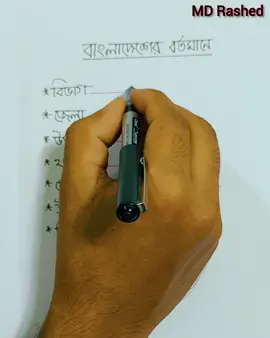 MD Rashed
বাংলাদেশের বর্তমানে
* বিভাগ
* জেলা
* উ
* থ